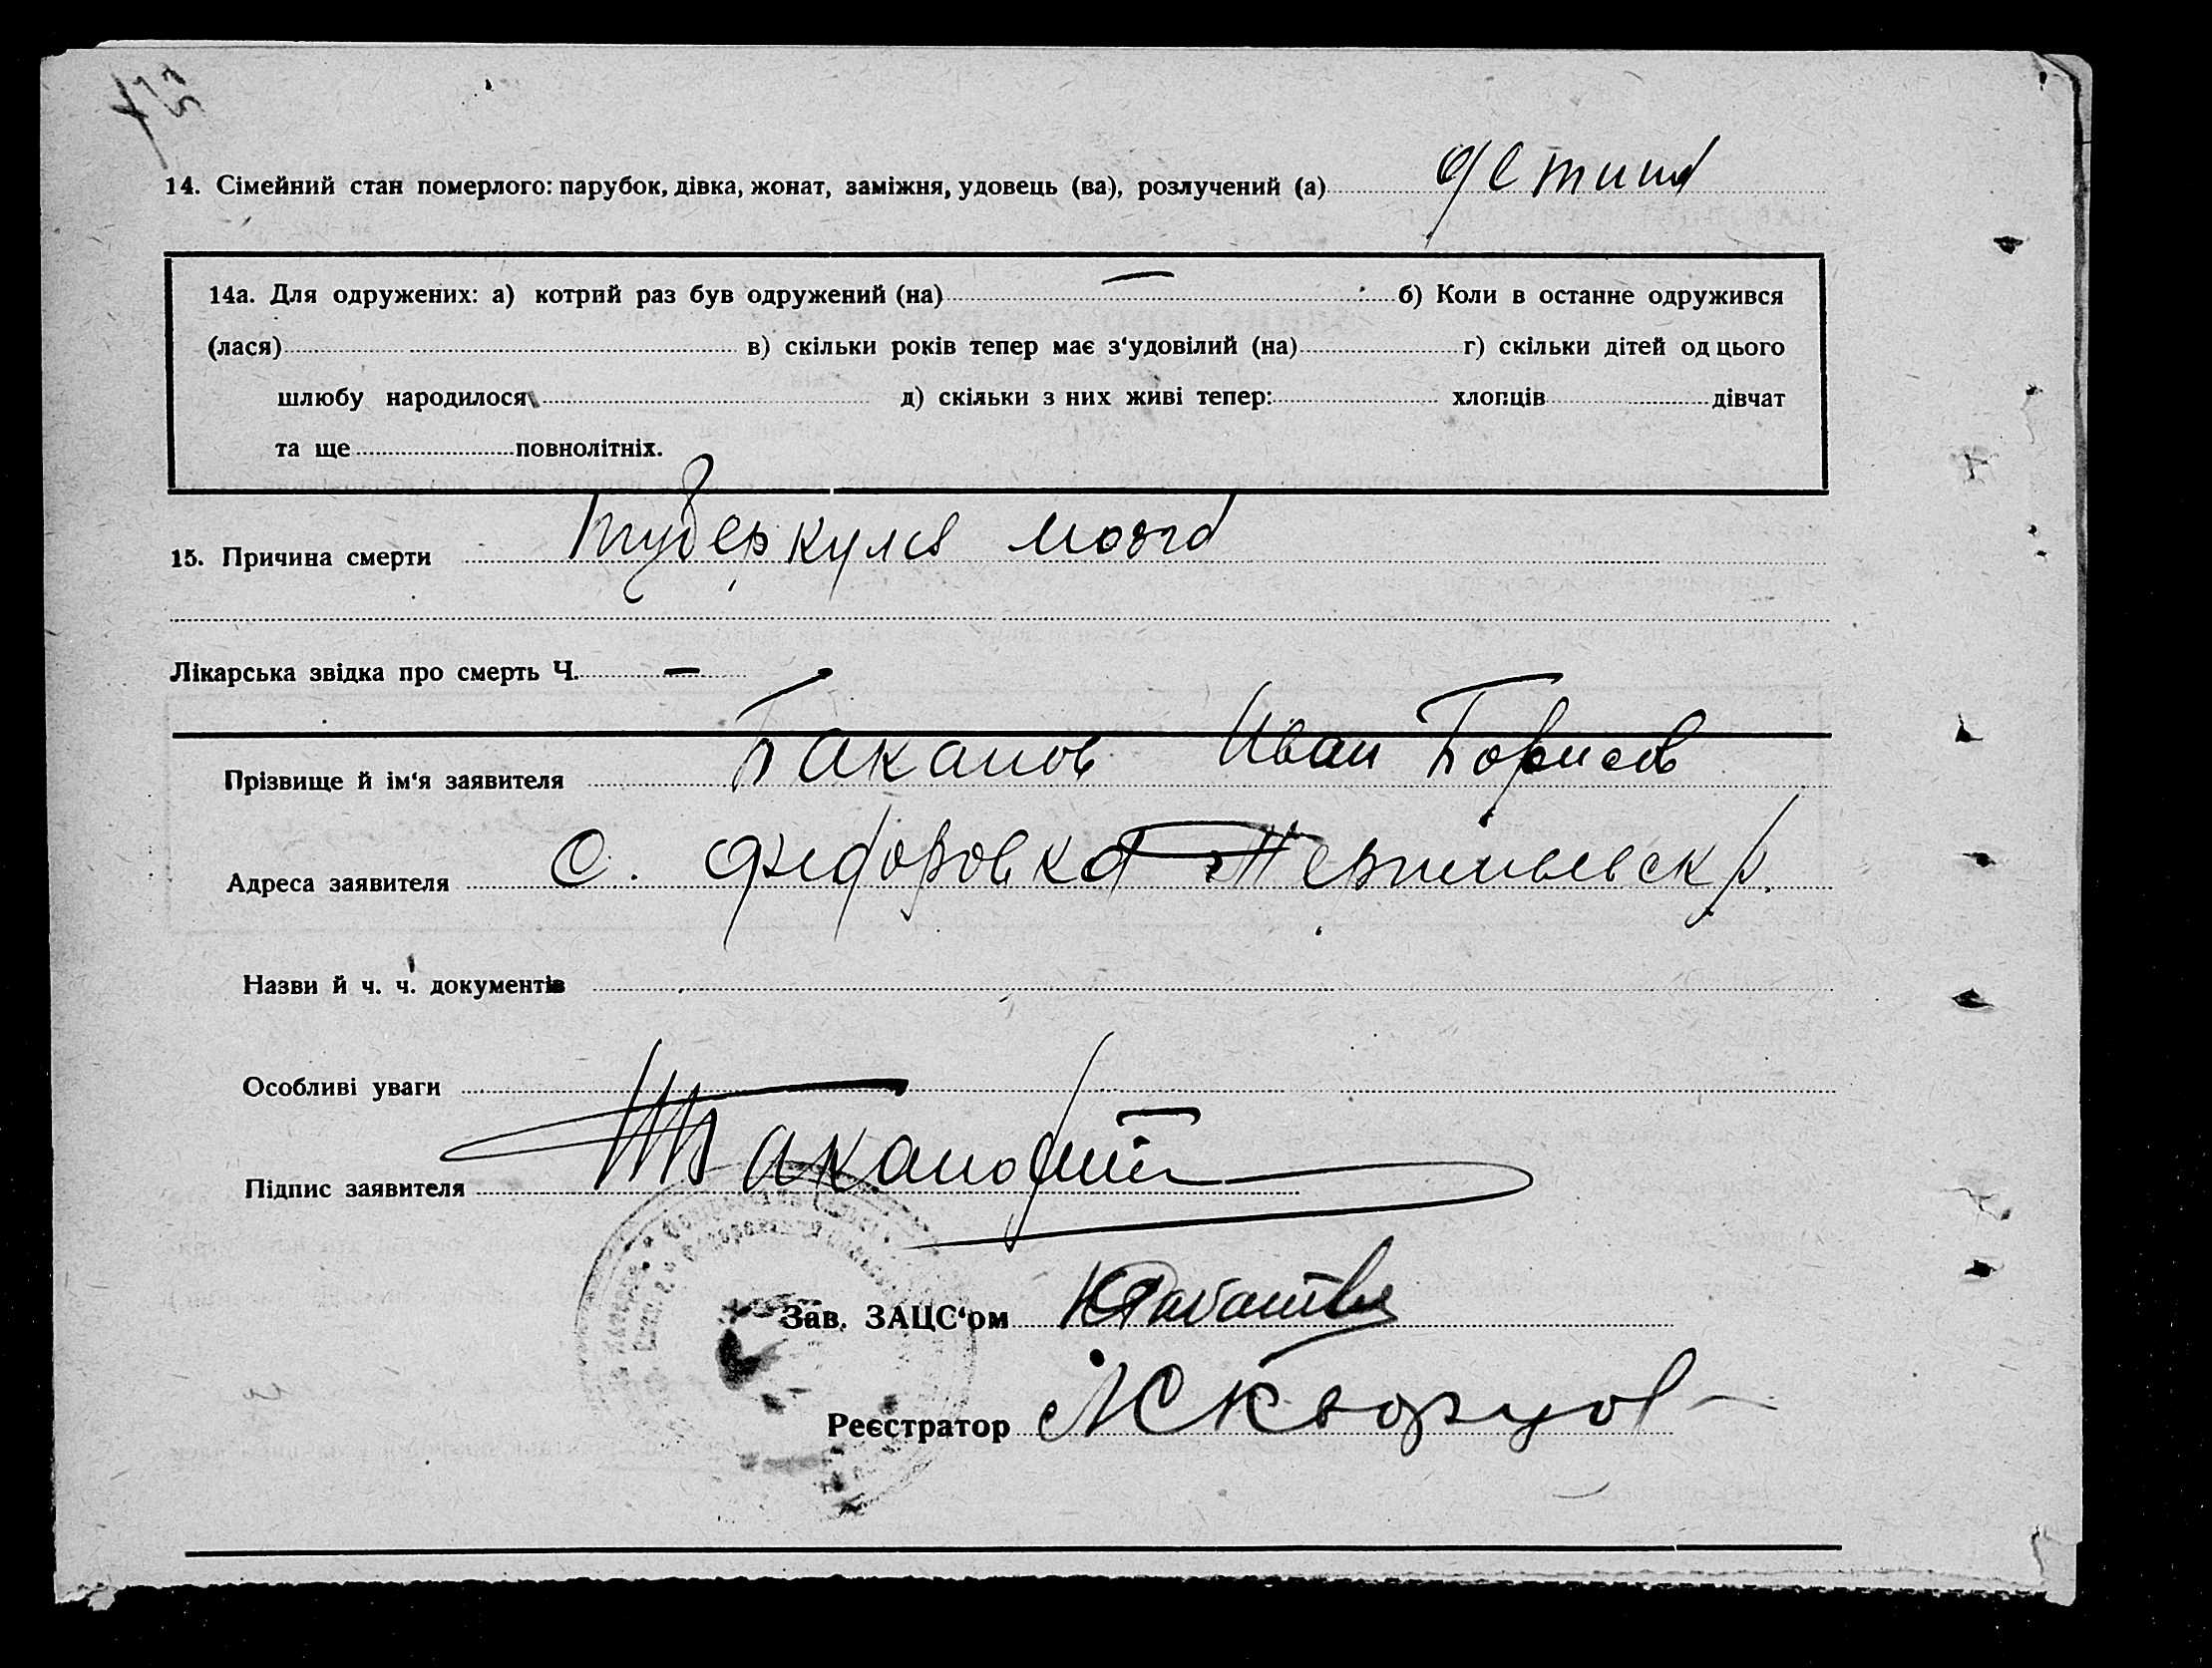 14. Сімейний стан померлого: парубок, дівка, жонат, заміжня, удовець (ва), розлучений (а) детина
14а. Для одружених: а) котрий раз був одружений (на) — б) Коли в останне одружився
(лася) в) скільки років тепер має з‘удовілий (на) г) скільки дітей од цього
шлюбу народилося д) скільки з них живі тепер: хлопців дівчат
та ще повнолітніх.
15. Причина смерти туберкулез мозга
Лікарська звідка про смерть Ч. —
Прізвище й ім‘я заявителя Баканов Иван Борисов
Адреса заявителя С. Федоровка р.
Назви й ч. ч. документів
Особливі уваги
Підпис заявителя
Зав. ЗАЦС‘ом
Реєстратор Скворцов